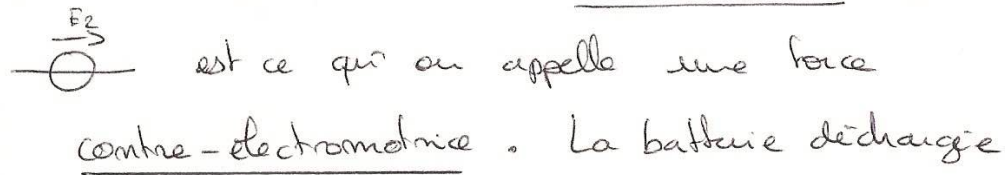 E2
est ce qui on appelle une force
contre-électromotrice. La batterie déchargée